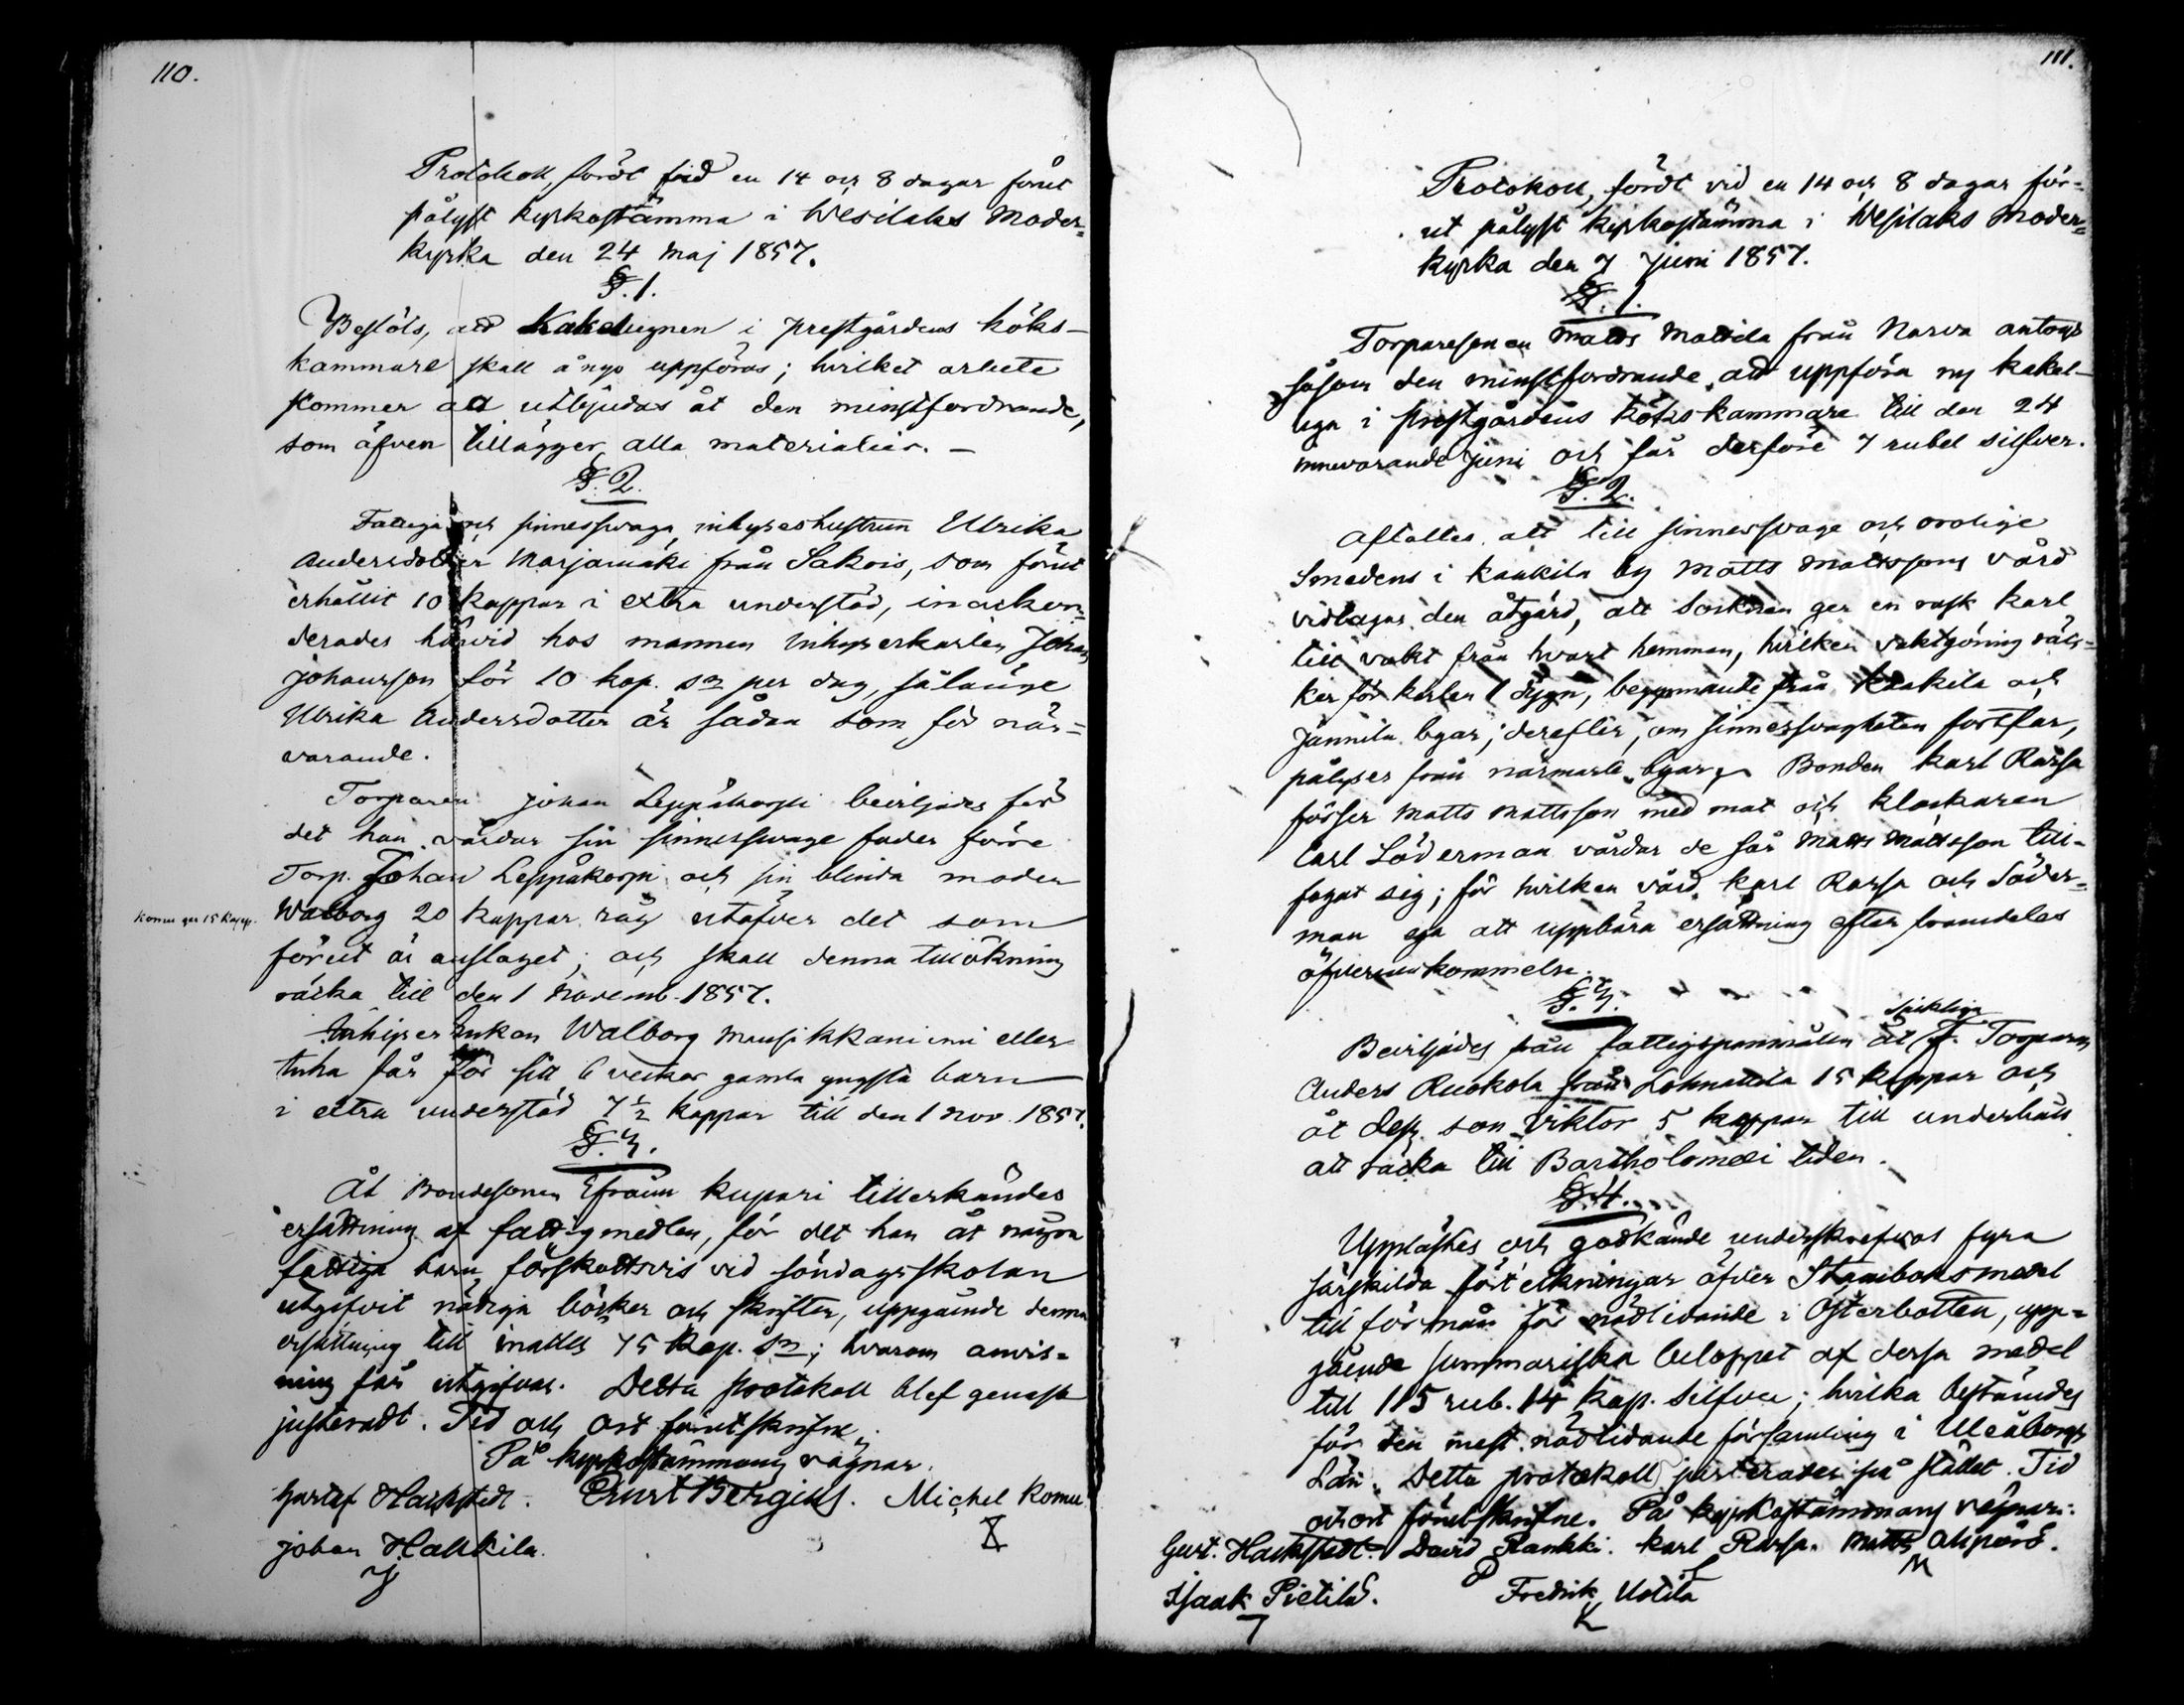 110.
Protokoll, fördt vid en 14 och 8 dagar förut
pålyst kyrkostämma i Wesilaks Moder-
kyrka den 24 Maj 1857.
§. 1.
Beslöts, att Kakelugnen i prestgårdens köks-
kammare skall å nyo uppföras; hvilket arbete
kommer att utbjudas åt den minstfordrande,
som äfven tillägger alla materialier. —
§. 2.
Fattiga och sinnessvaga inhyseshustrun Ulrika
Andersdotter Marjamäki från Sakois, som förut
erhållit 10 kappar i extra understöd, inackor-
derades härvid hos mannen Inhyserkarlen Johan
Johansson för 10 kop. Sr per dag, sålänge
Ulrika Andersdotter är sådan som för när-
varande.
Torparen Johan Leppäkorpi beviljades för
det han vårdar sin sinnessvage fader förre
Torp. Johan Leppäkorpi och sin blinda moder
Walborg 20 kappar råg utöfver det som
Komu ger 15 kapp.
förut är anslaget; och skall denna tillökning
räcka till den 1 Novemb. 1857.
Inhyser Enkan Walborg Mansikkaniemi eller
Tuha får för sitt 6 veckor gamla yngsta barn
i extra understöd 7 1/2 kappar till den 1 Nov. 1857.
§. 3.
Åt Bondesonen Efraim Kupari tillerkändes
ersättning af fattigmedlen, för det han åt några
fattiga barn förskottsvis vid söndagsskolan
utgifvit nödiga böcker och skrifter, uppgående denna
ersättning till inalles 75 Kop. Sr; hvarom anvis-
ning får utgifvas. Detta protokoll blef genast
justeradt. Tid och Ort förutskrifne.
På kyrkostämmans vägnar.
Gustaf Hackstedt. Ernst Bergius. Michel Komu
Johan Hakkila.
111.
Protokoll, fördt vid en 14 och 8 dagar för-
ut pålyst kyrkostämma i Wesilaks Moder-
kyrka den 7 Juni 1857.
§. 1.
Torparesonen Matts Mattila från Narva antogs
såsom den minstfordrande att uppföra ny kakel-
ugn i prestgårdens kökskammare till den 24
innevarande Juni och får derföre 7 rubel silfver.
§. 2.
Aftaltes att till sinnessvage och orolige
Smedens i Kaukila by Matts Mattssons vård
vidtagas den åtgärd, att Socknen ger en rask karl
till vakt från hvart hemman, hvilken vaktgöring räc-
ker för karlen 1 dygn, begynnande från Kaukila och
Jannila byar; derefter, om sinnessvagheten fortfar,
pålyses från närmaste byar. Bonden Karl Rassa
förser Matts Mattsson med mat och klockaren
Carl Söderman vårdar de sår Matts Mattsson till-
fogat sig; för hvilken vård Karl Rassa och Söder-
man ega att uppbära ersättning efter framdeles
öfverenskommelse.
§. 3.
Beviljades från fattigspanmålen åt sjuklige f. Torparen
Anders Ruokola från Lohnattila 15 kappar och
åt dess son Viktor 5 kappar till underhåll
att räcka till Bartholomæi tiden.
§. 4.
Upplästes och godkände underskrefvos fyra
särskilda förteckningar öfver Stamboksmedel
till förmån för nödlidande i Österbotten, upp-
gående summariska beloppet af dessa medel
till 115 rub. 14 kop. Silfver; hvilka bestämdes
för den mest nödlidande församling i Uleåborgs
Län. Detta protokoll justerades på stället. Tid
och ort förutskrifne. På kyrkostämmans vägnar:
Gust. Hackstedt. David Rankki. Karl Rassa.
Isaak Pietilä. Fredrik Uotila